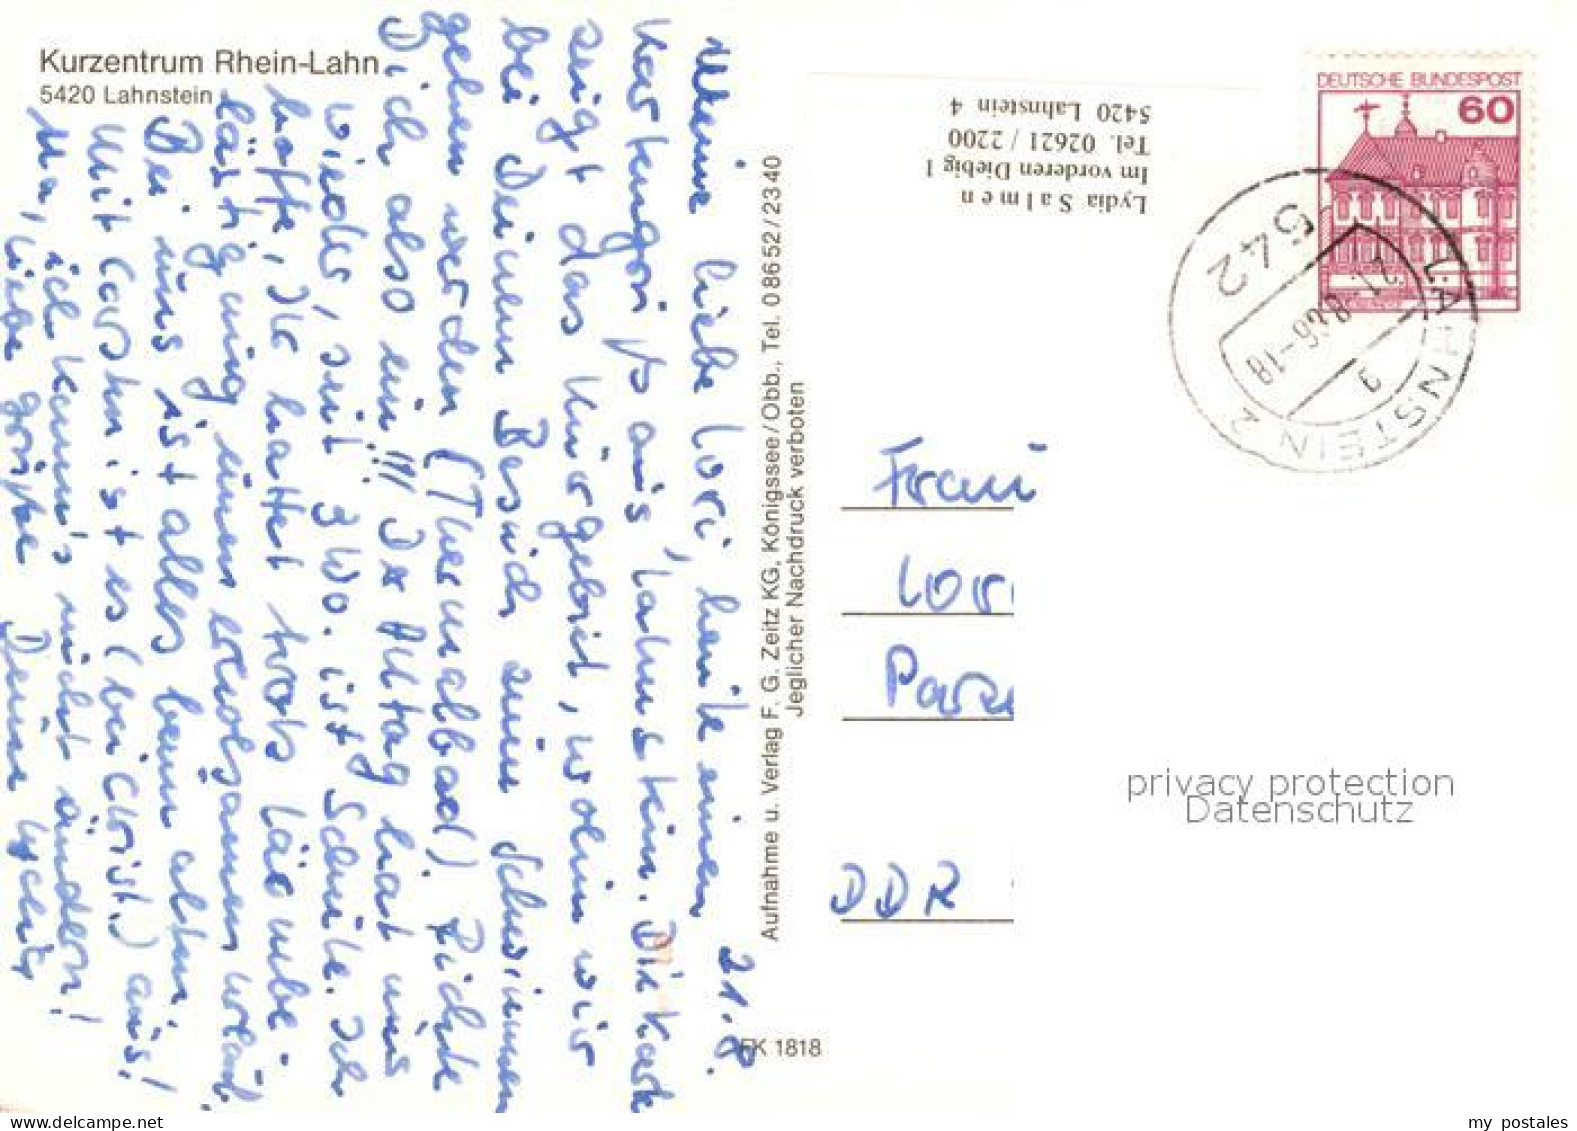 Kurzentrum Rhein-Lahn
5420 Lahnstein
21.8.
Meine liebe Lori, heute einen
Kartengruß aus Lahnstein. Die Karte
zeigt das Kurgebiet, wohin wir
bei Deinem Besuch zum Schwimmen
gehen werden (Thermalbad). Richte
Dich also ein!!! Der Alltag hat uns
wieder, seit 3 Wo. ist Schule. Ich
hoffe, Ihr hattet trotz Lärmbe-
lästigung einen erholsamen Urlaub.
Bei uns ist alles beim alten.
Mit Carsten ist es (bei Christ.) aus!
Na, ich kann's nicht ändern!
Liebe Grüße Deine Lydia
Aufnahme u. Verlag F. G. Zeitz KG, Königssee/Obb., Tel. 08652/2340
Jeglicher Nachdruck verboten
FK 1818
Lydia Salmen
Im vorderen Diebig 1
Tel. 02621 / 2200
5420 Lahnstein 4
DEUTSCHE BUNDESPOST
60
542 LAHNSTEIN 2
21.-8.86-18
g
Frau
Lor
DDR
privacy protection
Datenschutz
my postales